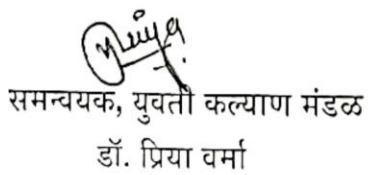 समन्वयक, युवती कल्याण मंडळ
डॉ. प्रिया वर्मा